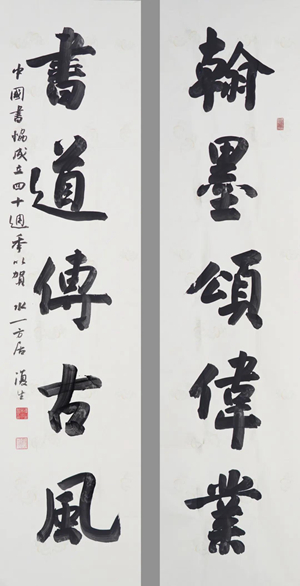 翰墨頌偉業
書道傳古風
中國書協成立四十週年以賀 水一方居 滇生